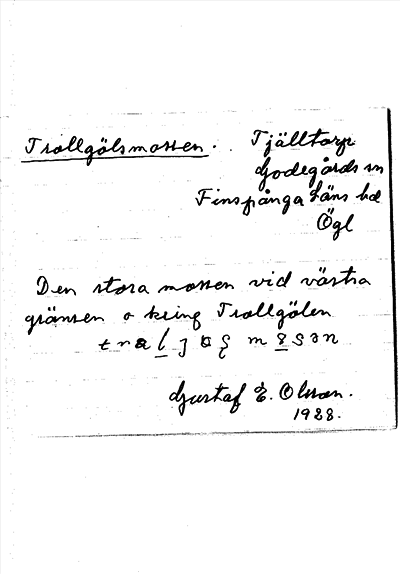 Trollgölsmossen. Tjälltorp
Godegårds sn
Finspånga läns hd
Ögl
Den stora mossen vid västra
gränsen o kring Trollgölen
Gustaf E. Olsson.
1928.